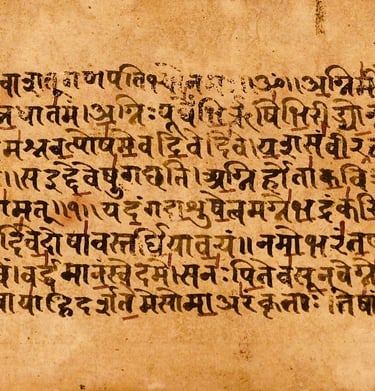 गणपतिभ्योनमः॥ॐ॥अग्निमी
नधातमं।अग्निःपूर्वेभिर्ऋषिभिरीड्यो
मश्नवत्पोषमेवदिवेदिवे।यशसंवीर
॥सइद्देवेषुगच्छति।अग्निर्होताकवि
गमत्॥१॥यदंगदाशुषेत्वमग्नेभद्रंकरि
दिवेदोषावस्तर्धियावयं॥नमोभरंतए
वर्द्धमानंस्वेदमे।सनःपितेवसूनवेग्ने
वायायाहिदर्शतेमेसोमाअरंकृताः।तेषां